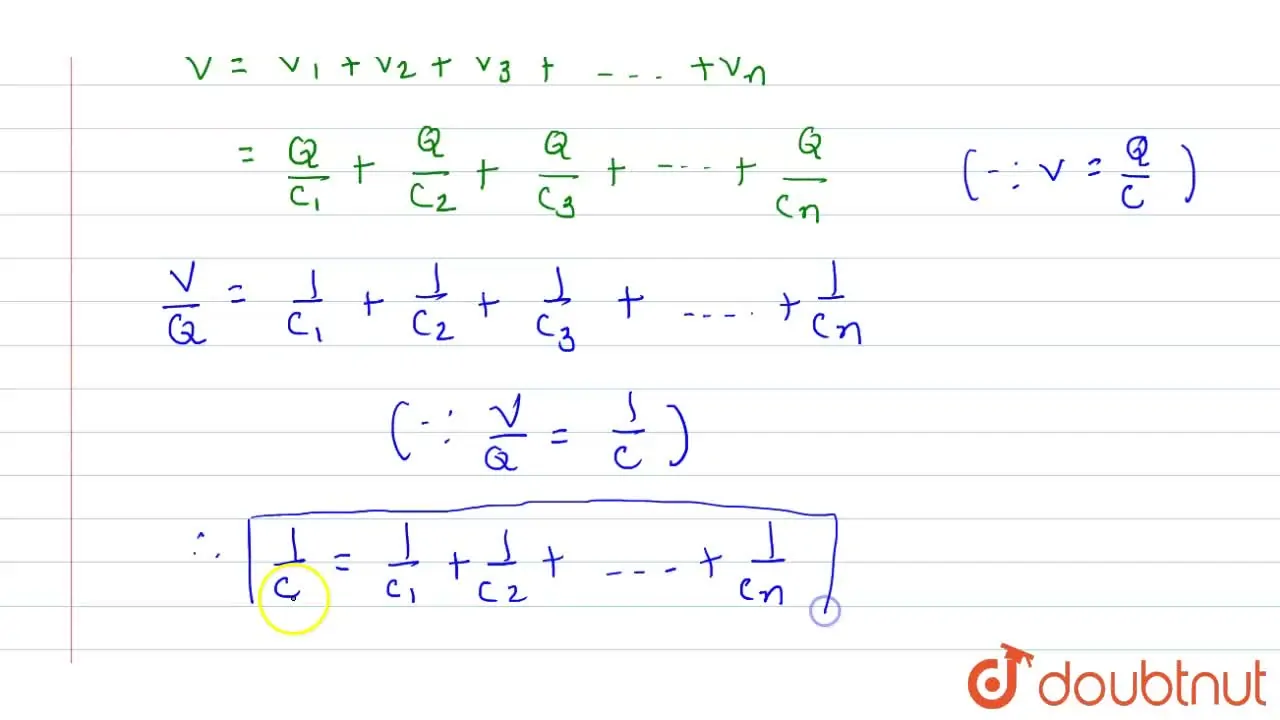 V = V1 + V2 + V3 + ---- + Vn
= Q/C1 + Q/C2 + Q/C3 + ---- + Q/Cn (∵ V = Q/C)
V/Q = 1/C1 + 1/C2 + 1/C3 + ----- + 1/Cn
(∵ V/Q = 1/C)
∴ 1/C = 1/C1 + 1/C2 + ---- + 1/Cn
doubtnut